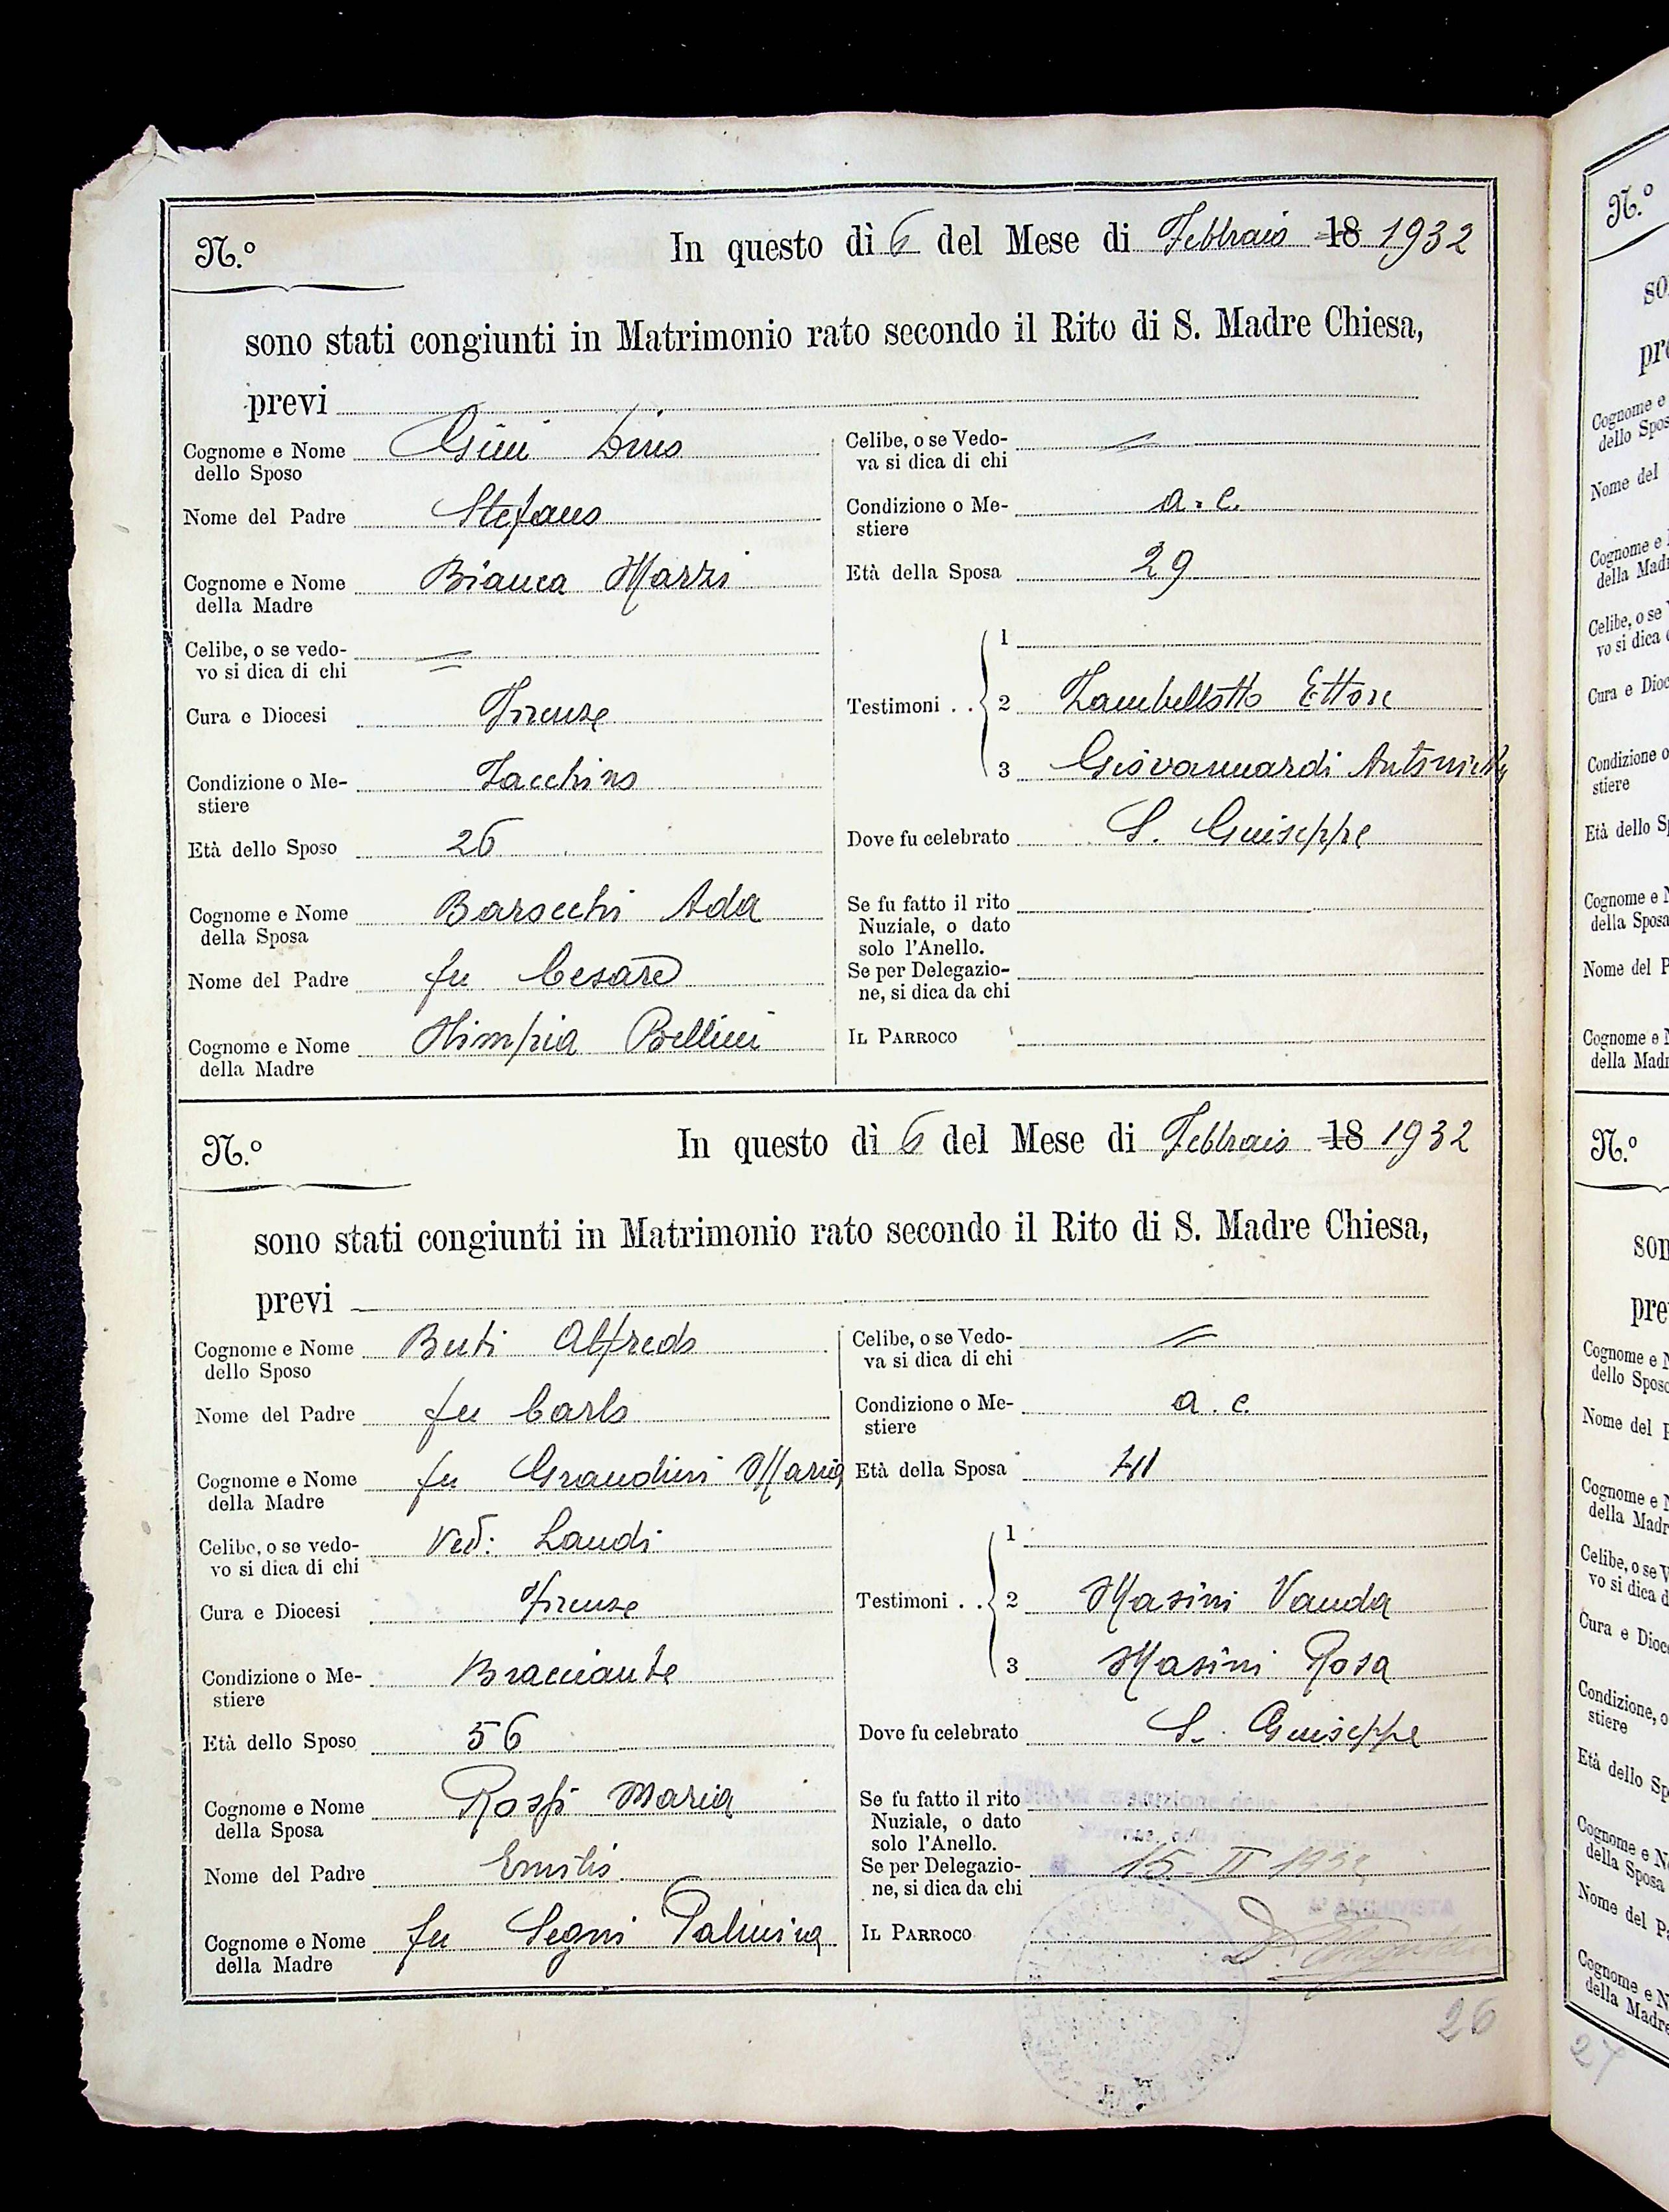 N.º In questo dì 6 del Mese di Febbraio 18 1932
sono stati congiunti in Matrimonio rato secondo il Rito di S. Madre Chiesa,
previ
Cognome e Nome dello Sposo Gini Dino
Nome del Padre Stefano
Cognome e Nome della Madre Bianca Marzi
Celibe, o se vedovo si dica di chi =
Cura e Diocesi Firenze
Condizione o Mestiere Facchino
Età dello Sposo 26
Cognome e Nome della Sposa Barocchi Ada
Nome del Padre fu Cesare
Cognome e Nome della Madre Olimpia Bellini
Celibe, o se Vedova si dica di chi =
Condizione o Mestiere a. c.
Età della Sposa 29
Testimoni . . 1
2 Zambellotto Ettore
3 Giovannardi
Dove fu celebrato S. Guiseppe
Se fu fatto il rito Nuziale, o dato solo l'Anello.
Se per Delegazione, si dica da chi
IL PARROCO
N.º In questo dì 6 del Mese di Febbraio 18 1932
sono stati congiunti in Matrimonio rato secondo il Rito di S. Madre Chiesa,
previ
Cognome e Nome dello Sposo Buti Alfredo
Nome del Padre fu Carlo
Cognome e Nome della Madre fu Grandini Maria
Celibe, o se vedovo si dica di chi Ved: Landi
Cura e Diocesi Firenze
Condizione o Mestiere Bracciante
Età dello Sposo 56
Cognome e Nome della Sposa Rossi Maria
Nome del Padre Emilio
Cognome e Nome della Madre fu Segni Palmira
Celibe, o se Vedova si dica di chi =
Condizione o Mestiere a. c.
Età della Sposa 41
Testimoni . . 1
2 Masini Vanda
3 Masini Rosa
Dove fu celebrato S. Guiseppe
Se fu fatto il rito Nuziale, o dato solo l'Anello.
Se per Delegazione, si dica da chi 15. II
IL PARROCO
26
N.º
Cognome e
dello Spos
Nome del
Cognome e
della Mad
Celibe, o se
vo si dica
Cura e Dioc
Condizione o
stiere
Età dello S
Cognome e N
della Sposa
Nome del P
Cognome e N
della Mad
N.º
son
pre
Cognome e N
dello Sposo
Nome del P
Cognome e N
della Madr
Celibe, o se V
vo si dica d
Cura e Dioc
Condizione, o
stiere
Età dello Sp
Cognome e N
della Sposa
Nome del Pa
Cognome e N
della Madre
27